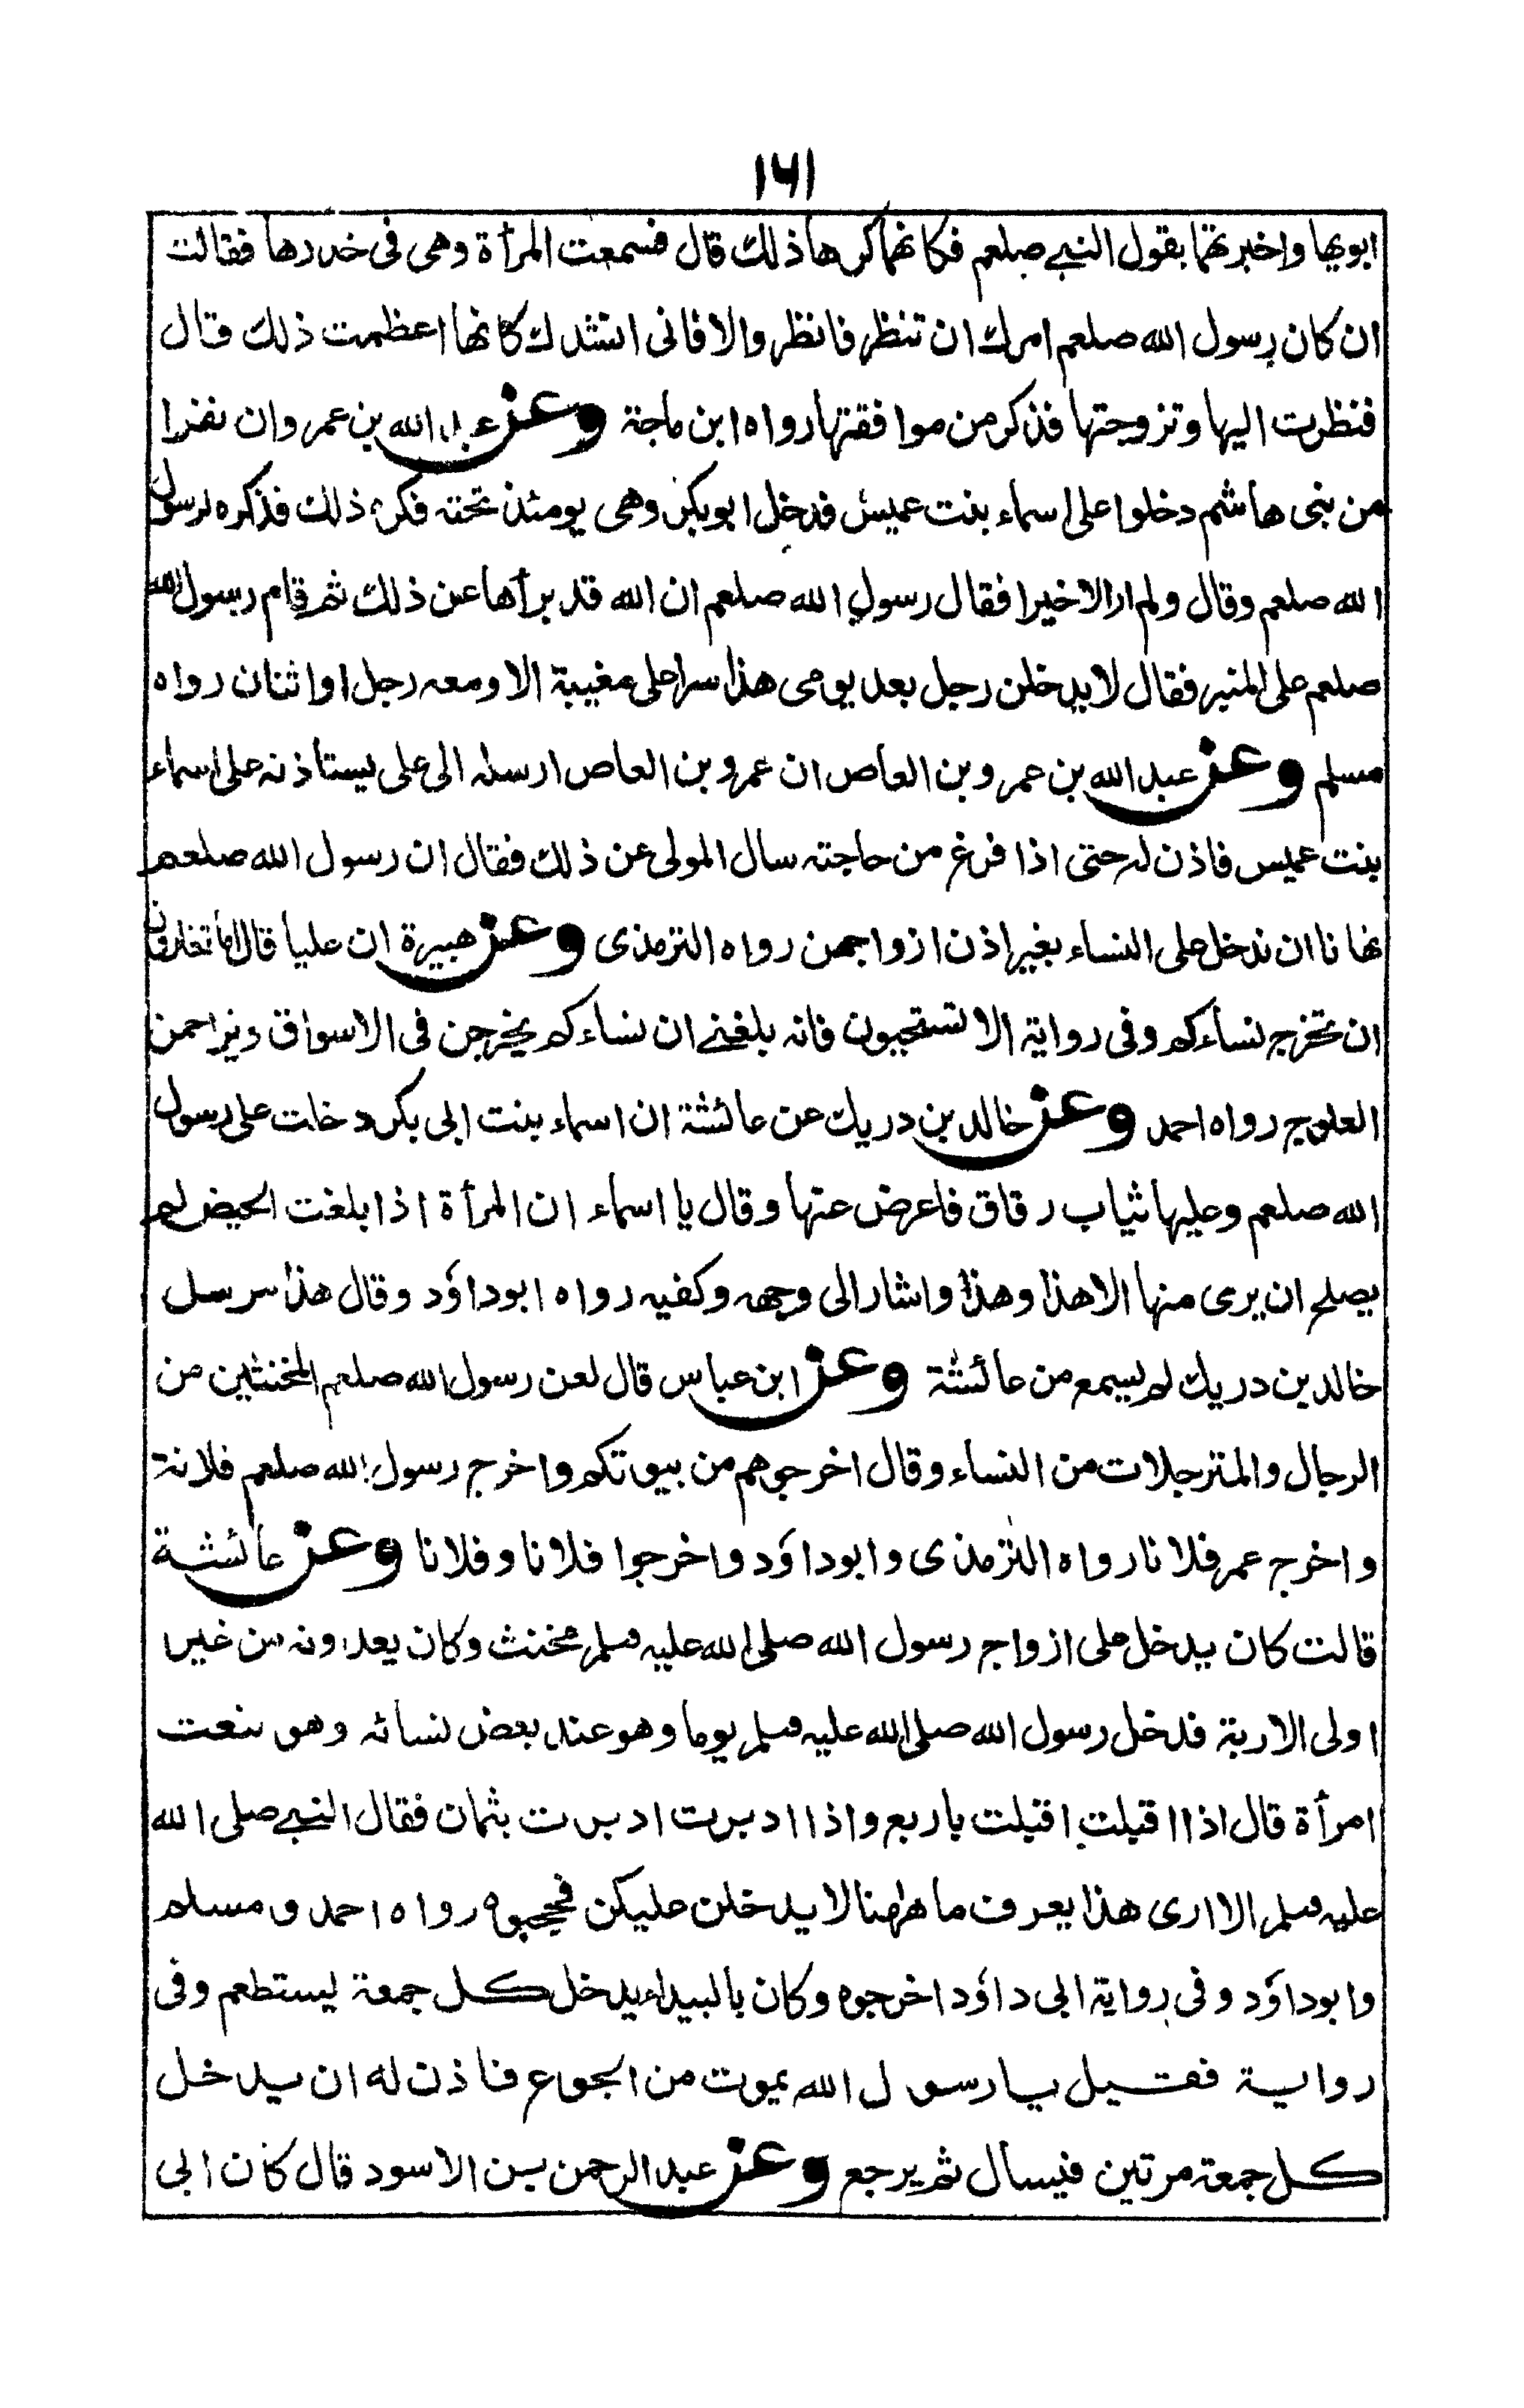 ۱۶۱
ابويها واخبرتهما بقول النبي صلعم فكانهما كرها ذلك قال فسمعت المرأة وهى فى خدرها فقالت
ان كان رسول الله صلعم امرك ان تنظر فانظر والا فانى انشدك كانها اعظمت ذلك قال
فنظرت اليها وتزوجتها فذكر من موافقتها رواه ابن ماجة وعن عبد الله بن عمر وان نفرا
من بنى هاشم دخلوا على اسماء بنت عميس فدخل ابوبكر وهى يومئذ تحته فكره ذلك فذكره لرسول
الله صلعم وقال ولم ار الا خيرا فقال رسول الله صلعم ان الله قد برأها عن ذلك ثم قام رسول الله
صلعم على المنبر فقال لا يدخلن رجل بعد يومى هذا سرا على مغيبة الا ومعه رجل او اثنان رواه
مسلم وعن عبد الله بن عمرو بن العاص ان عمرو بن العاص ارسله الى على يستاذنه على اسماء
بنت عميس فاذن له حتى اذا فرغ من حاجته سال المولى عن ذلك فقال ان رسول الله صلعم
نهانا ان ندخل على النساء بغير اذن ازواجهن رواه الترمذى وعن هبيرة ان عليا قال اما تغارون
ان تخرج نساءكم وفى رواية الا تستحيون فانه بلغنے ان نساءكم يخرجن فى الاسواق ويزاحمن
العلوج رواه احمد وعن خالد بن دريك عن عائشة ان اسماء بنت ابى بكر دخلت على رسول
الله صلعم وعليها ثياب رقاق فاعرض عنها وقال يا اسماء ان المرأة اذا بلغت الحيض لم
يصلح ان يرى منها الا هذا وهذا واشار الى وجهه وكفيه رواه ابوداؤد وقال هذا مرسل
خالد بن دريك لم يسمع من عائشة وعن ابن عباس قال لعن رسول الله صلعم المخنثين من
الرجال والمترجلات من النساء وقال اخرجوهم من بيوتكم واخرج رسول الله صلعم فلانة
واخرج عمر فلانا رواه الترمذى وابوداؤد واخرجوا فلانا وفلانا وعن عائشة
قالت كان يدخل على ازواج رسول الله صلى الله عليه وسلم مخنث وكان يعدونه من غير
اولى الاربة فدخل رسول الله صلى الله عليه وسلم يوما وهو عند بعض نسائه وهو ينعت
امرأة قال اذا اقبلت اقبلت باربع واذا ادبرت ادبرت بثمان فقال النبي صلى الله
عليه وسلم الا ارى هذا يعرف ما ههنا لا يدخلن عليكن فحجبوه رواه احمد و مسلم
وابوداؤد وفى رواية ابى داؤد اخرجوه وكان بالبيداء يدخل كل جمعة يستطعم وفى
رواية فقيل يا رسول الله يموت من الجوع فاذن له ان يدخل
كل جمعة مرتين فيسأل ثم يرجع وعن عبد الرحمن بن الاسود قال كان ابى